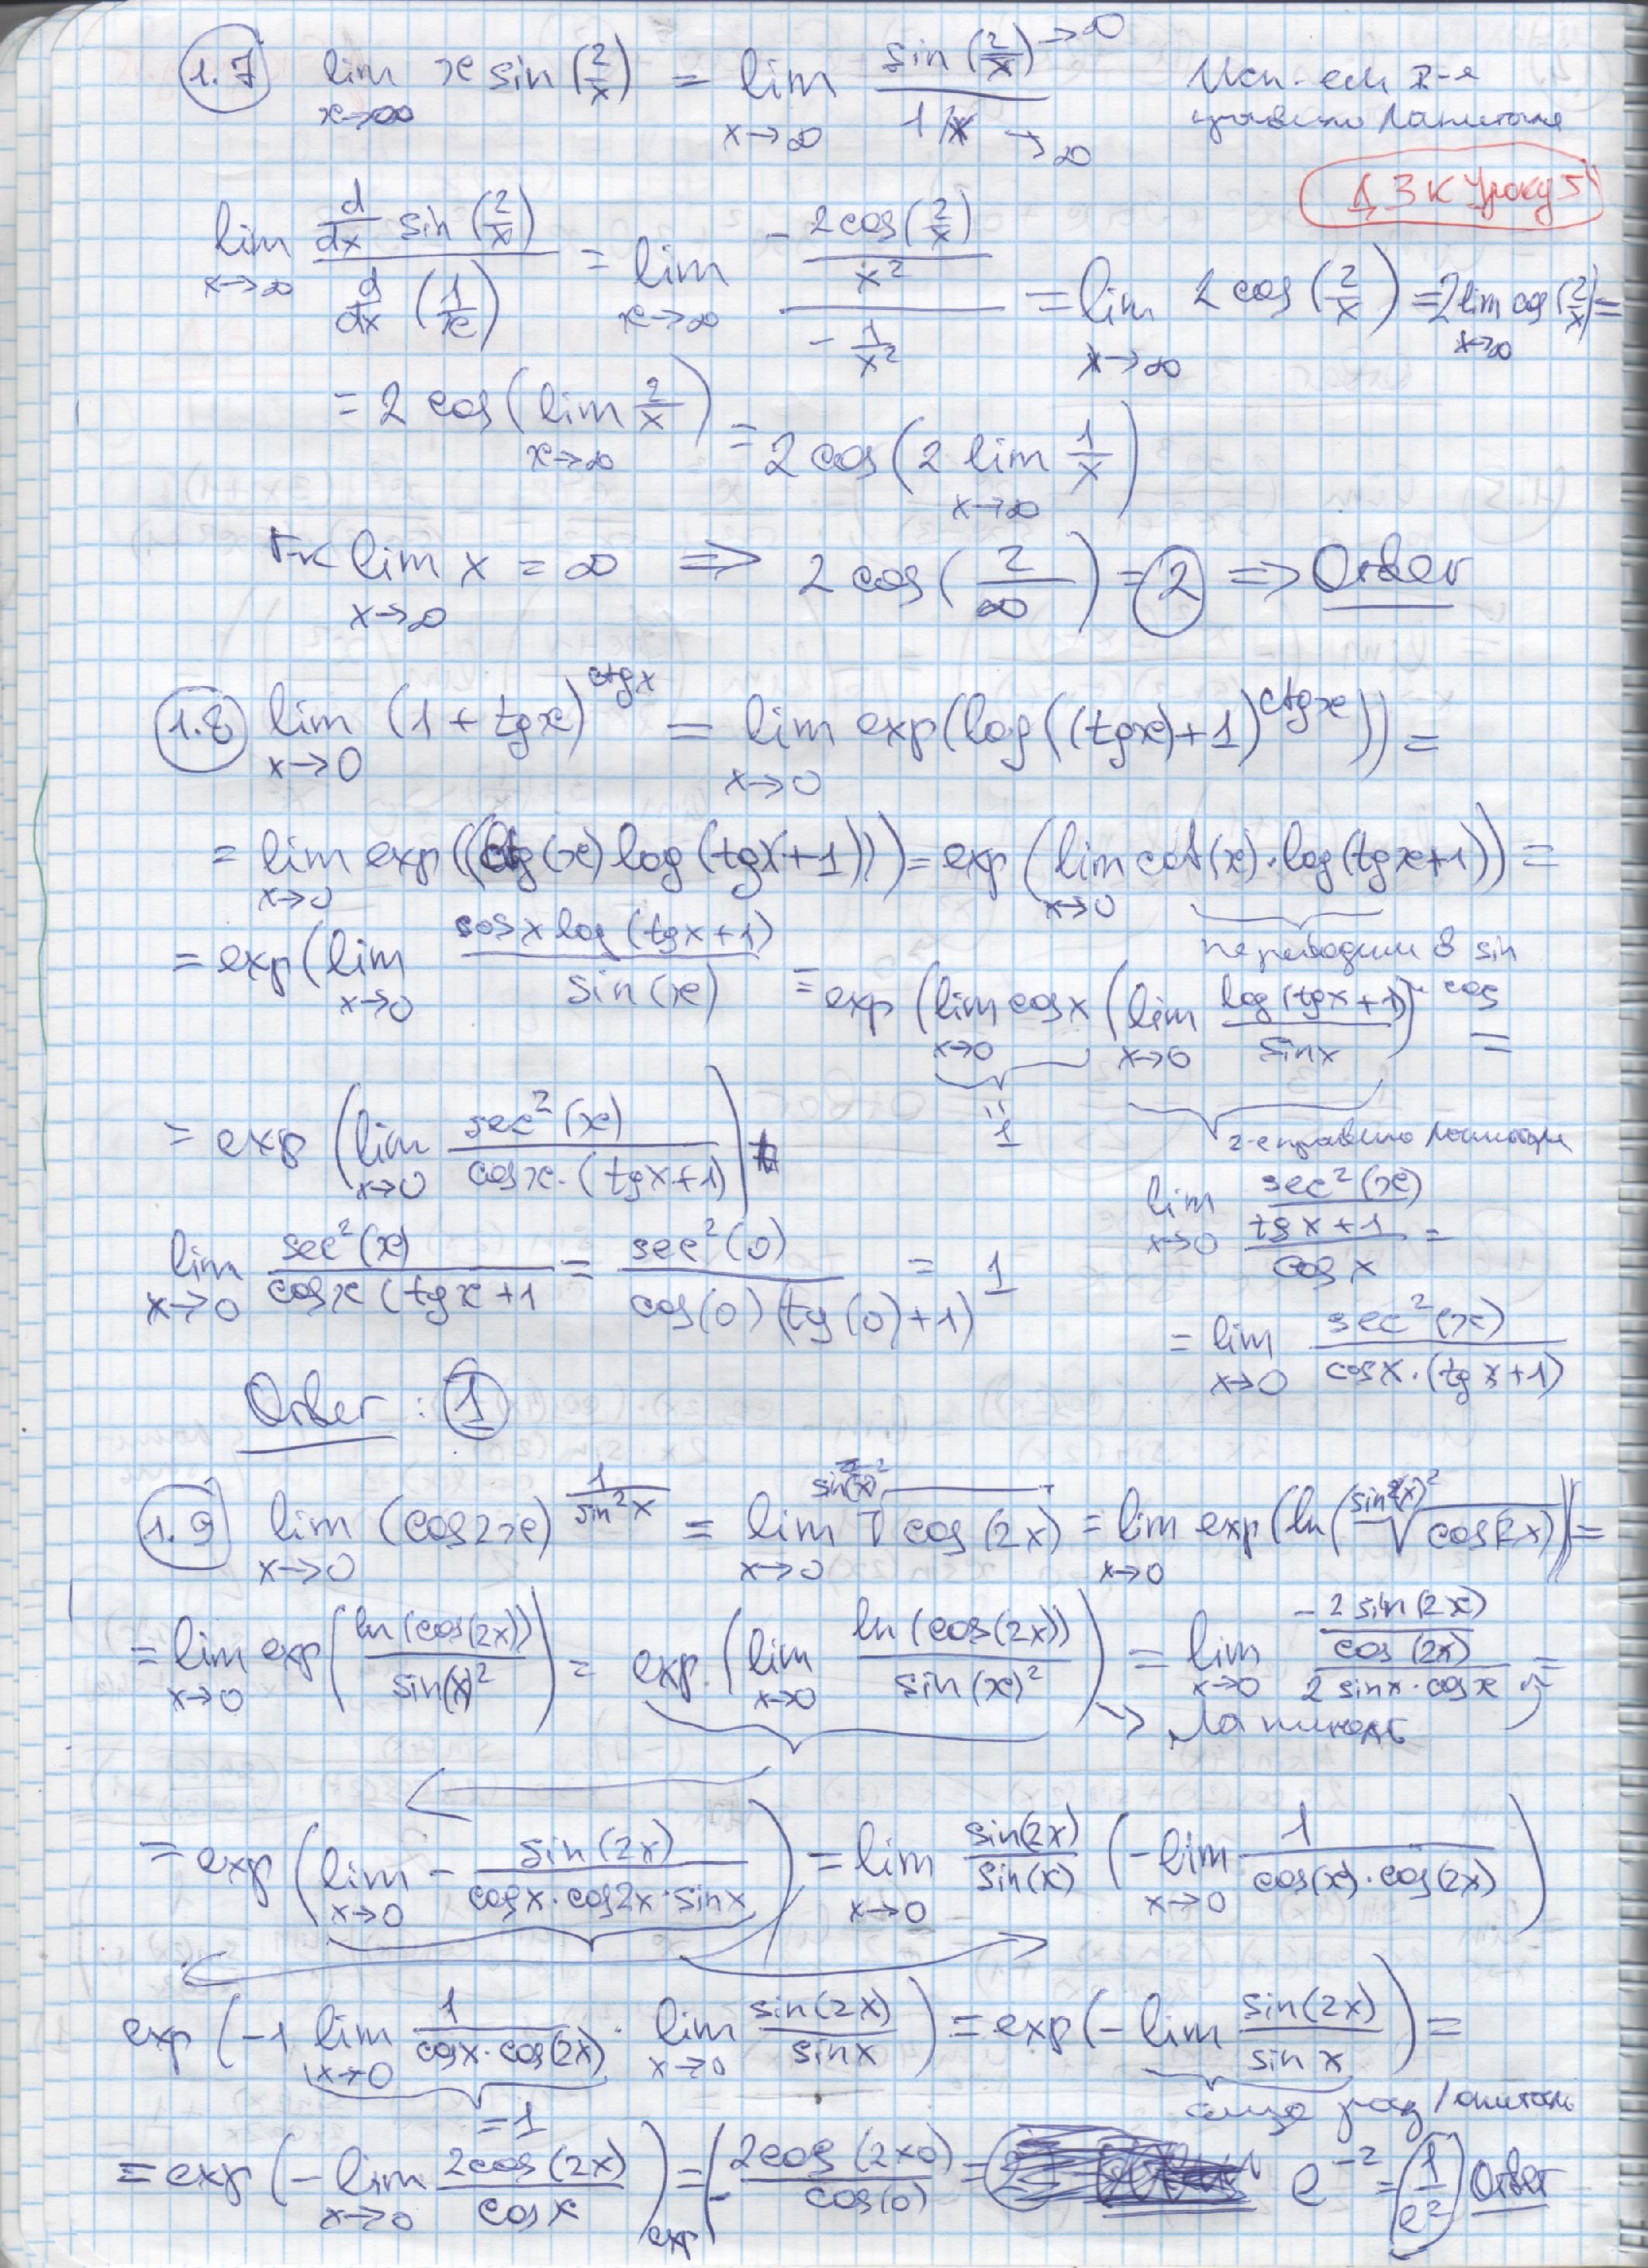 1.7 lim x→∞ x sin (2/x) = lim x→∞ sin (2/x) →∞ / 1/x →∞ Исп-ем 2-е
правило Лапиталя
ДЗ к уроку 5
lim x→∞ d/dx sin (2/x) / d/dx (1/x) = lim x→∞ - 2cos(2/x) / x² / - 1/x² = lim x→∞ 2 cos (2/x) = 2 lim x→∞ cos (2/x) =
= 2 cos (lim x→∞ 2/x) = 2 cos (2 lim x→∞ 1/x)
т.к lim x→∞ x = ∞ ⇒ 2 cos (2/∞) = 2 ⇒ Ответ
1.8 lim x→0 (1 + tgx)^ctgx = lim x→0 exp(log((tgx)+1)^ctgx)) =
= lim x→0 exp((ctg(x) log (tgx+1))) = exp (lim x→0 cot(x)·log(tgx+1)) =
переводим в sin
cos
= exp (lim x→0 cosx log (tgx+1) / sin(x) = exp (lim x→0 cosx (lim x→0 log(tgx+1) / sinx) =
"1
2-е правило Лапиталя
= exp (lim x→0 sec²(x) / cosx·(tgx+1))
lim x→0 sec²(x) / tgx+1 / cosx =
lim x→0 sec²(x) / cosx (tgx+1 = sec²(0) / cos(0)(tg(0)+1) = 1
= lim x→0 sec²(x) / cosx·(tgx+1)
Ответ : 1
1.9 lim x→0 (cos2x)^1/sin²x = lim x→0 sin(x)²√cos(2x) = lim x→0 exp(ln(sin(x)²√cos(2x))) =
= lim x→0 exp(ln(cos(2x)) / sin(x)²) = exp (lim x→0 ln(cos(2x)) / sin(x)²) = lim x→0 - 2sin(2x) / cos(2x) / 2 sinx·cosx =
→ Лапиталь
= exp (lim x→0 - sin(2x) / cosx·cos2x·sinx) = lim x→0 sin(2x) / sin(x) (-lim x→0 1 / cos(x)·cos(2x))
exp (-1 lim x→0 1 / cosx·cos(2x) · lim x→0 sin(2x) / sinx) = exp(-lim sin(2x) / sinx) =
=1
еще раз Лапиталь
= exp (-lim x→0 2cos(2x) / cosx) = exp(- 2cos(2×0) / cos(0) = e⁻² = (1/e²) Ответ